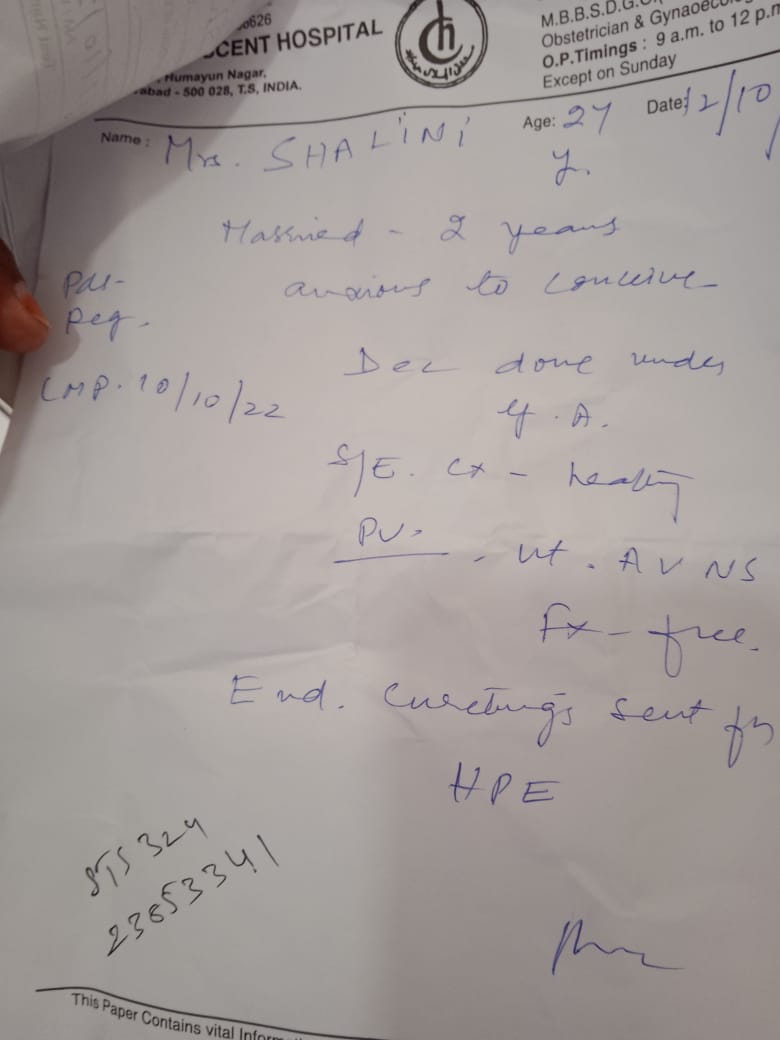 0626
CENT HOSPITAL
Humayun Nagar,
abad - 500 028, T.S, INDIA.
M.B.B.S.D.G.O
Obstetrician & Gynaecolog
O.P.Timings : 9 a.m. to 12 p.m
Except on Sunday
Name : Mrs. SHALINI
Age: 27 y.
Date: 12/10
Married - 2 years
anxious to conceive
Reg.
LMP. 10/10/22
D&C done under
G.A.
S/E. Cx - healthy
PV. - ut. AV NS
Fx - free.
End. Curettings sent for
HPE
STS 324
23653341
This Paper Contains vital Infor